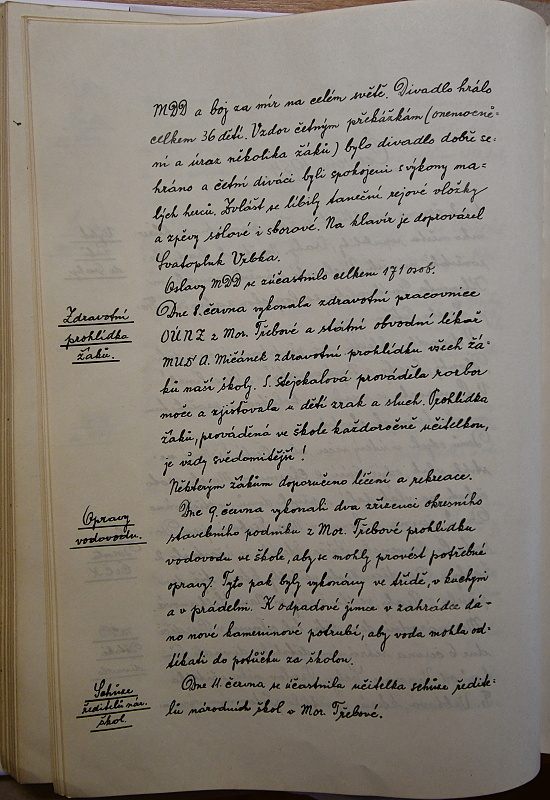 MDD a boj za mír na celém světě. Divadlo hrálo
celkem 36 dětí. Vzdor četným překážkám (onemocně-
ní a úraz několika žáků) bylo divadlo dobře se-
hráno a četní diváci byli spokojeni s výkony ma-
lých herců. Zvlášť se líbily taneční rejové vložky
a zpěvy sólové i sborové. Na klavír je doprovázel
Svatopluk Vrbka.
Oslavy MDD se zúčastnilo celkem 171 osob.
Zdravotní
prohlídka
žáků.
Dne 8. června vykonala zdravotní pracovnice
OÚNZ z Mor. Třebové a státní obvodní lékař
MUDr A. Mičánek zdravotní prohlídku všech žá-
ků naší školy. S. Stejskalová prováděla rozbor
moče a zjišťovala u dětí zrak a sluch. Prohlídka
žáků, prováděná ve škole každoročně učitelkou,
je vždy svědomitější!
Některým žákům doporučeno léčení a rekreace.
Opravy
vodovodu.
Dne 9. června vykonali dva zřízenci okresního
stavebního podniku z Mor. Třebové prohlídku
vodovodu ve škole, aby se mohly provést potřebné
opravy. Tyto pak byly vykonány ve třídě, v kuchyni
a v prádelni. K odpadové jímce v zahrádce dá-
no nové kameninové potrubí, aby voda mohla od-
tékati do potůčku za školou.
Schůze
ředitelů nár.
škol.
Dne 11. června se účastnila učitelka schůze ředite-
lů národních škol v Mor. Třebové.